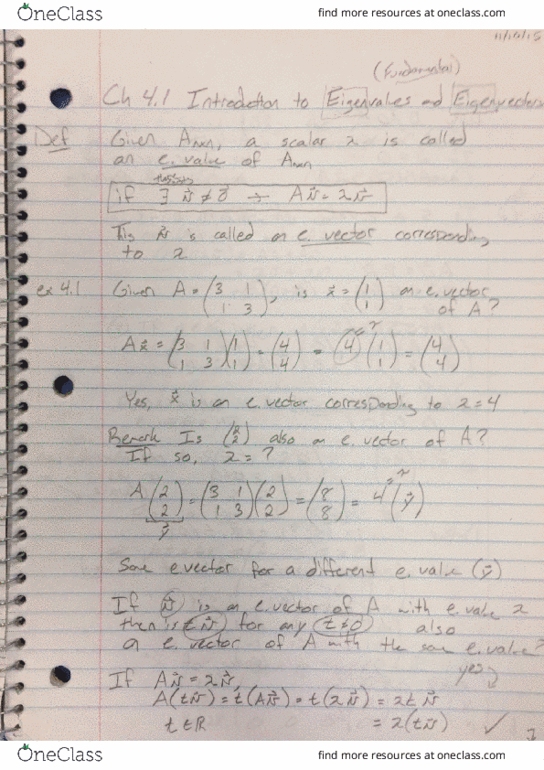 OneClass
find more resources at oneclass.com
(Fundamental)
Ch 4.1 Introduction to Eigenvalues and Eigenvectors
Def Given Anxn, a scalar λ is called
an e. value of Anxn
if ∃ v⃗ ≠ 0⃗ → Av⃗ = λv⃗
This v⃗ is called an e. vector corresponding
to λ
ex 4.1 Given A = (3 1; 1 3), is x⃗ = (1; 1) an e. vector
of A?
Ax⃗ = (3 1; 1 3)(1; 1) = (4; 4) = 4(1; 1) = (4; 4)
Yes, x⃗ is an e. vector corresponding to λ = 4
Remark Is (2; 2) also an e. vector of A?
If so, λ = ?
A(2; 2) = (3 1; 1 3)(2; 2) = (8; 8) = 4(y⃗)
y⃗
Same e vector for a different e. value (y⃗)
If v⃗ is an e. vector of A with e. value λ
then is t v⃗ for any t ≠ 0 also
a e. vector of A with the same e. value?
yes
If Av⃗ = λv⃗,
A(tv⃗) = t(Av⃗) = t(λv⃗) = λt v⃗
t ∈ R = λ(tv⃗) ✓
1
OneClass
find more resources at oneclass.com